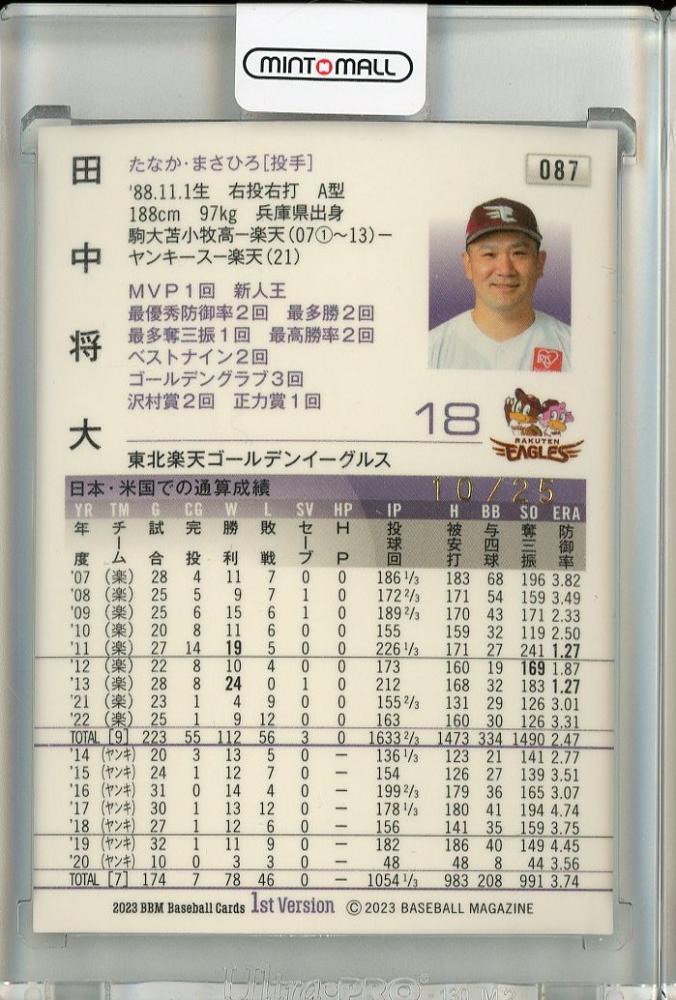 MINTOMALL
田中将大
たなか・まさひろ[投手]
087
'88.11.1生 右投右打 A型
188cm 97kg 兵庫県出身
駒大苫小牧高ー楽天(07①〜13)ー
ヤンキースー楽天(21)
MVP1回 新人王
最優秀防御率2回 最多勝2回
最多奪三振1回 最高勝率2回
ベストナイン2回
ゴールデングラブ3回
沢村賞2回 正力賞1回
IRIS
18
RAKUTEN
EAGLES
東北楽天ゴールデンイーグルス
日本・米国での通算成績 10/25
YR TM G CG W L SV HP IP H BB SO ERA
年度 チーム 試合 完投 勝利 敗戦 セーブ HP 投球回 被安打 与四球 奪三振 防御率
'07 (楽) 28 4 11 7 0 0 186 1/3 183 68 196 3.82
'08 (楽) 25 5 9 7 1 0 172 2/3 171 54 159 3.49
'09 (楽) 25 6 15 6 1 0 189 2/3 170 43 171 2.33
'10 (楽) 20 8 11 6 0 0 155 159 32 119 2.50
'11 (楽) 27 14 19 5 0 0 226 1/3 171 27 241 1.27
'12 (楽) 22 8 10 4 0 0 173 160 19 169 1.87
'13 (楽) 28 8 24 0 1 0 212 168 32 183 1.27
'21 (楽) 23 1 4 9 0 0 155 2/3 131 29 126 3.01
'22 (楽) 25 1 9 12 0 0 163 160 30 126 3.31
TOTAL [9] 223 55 112 56 3 0 1633 2/3 1473 334 1490 2.47
'14 (ヤンキ) 20 3 13 5 0 ー 136 1/3 123 21 141 2.77
'15 (ヤンキ) 24 1 12 7 0 ー 154 126 27 139 3.51
'16 (ヤンキ) 31 0 14 4 0 ー 199 2/3 179 36 165 3.07
'17 (ヤンキ) 30 1 13 12 0 ー 178 1/3 180 41 194 4.74
'18 (ヤンキ) 27 1 12 6 0 ー 156 141 35 159 3.75
'19 (ヤンキ) 32 1 11 9 0 ー 182 186 40 149 4.45
'20 (ヤンキ) 10 0 3 3 0 ー 48 48 8 44 3.56
TOTAL [7] 174 7 78 46 0 ー 1054 1/3 983 208 991 3.74
2023 BBM Baseball Cards 1st Version ©2023 BASEBALL MAGAZINE
Ultra PRO